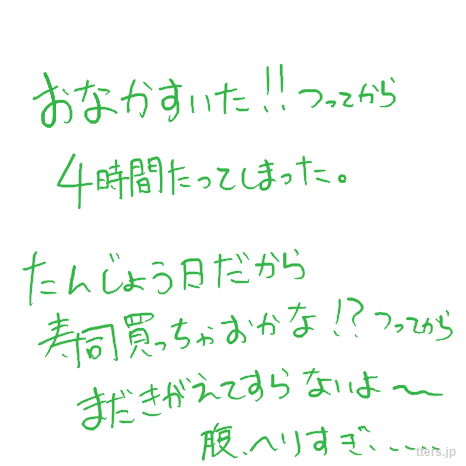 おなかすいた!!つってから
4時間たってしまった。
たんじょう日だから
寿司買っちゃおかな!?つってから
まだきがえてすらないよ〜
腹、へりすぎ、、、、、
tters.jp